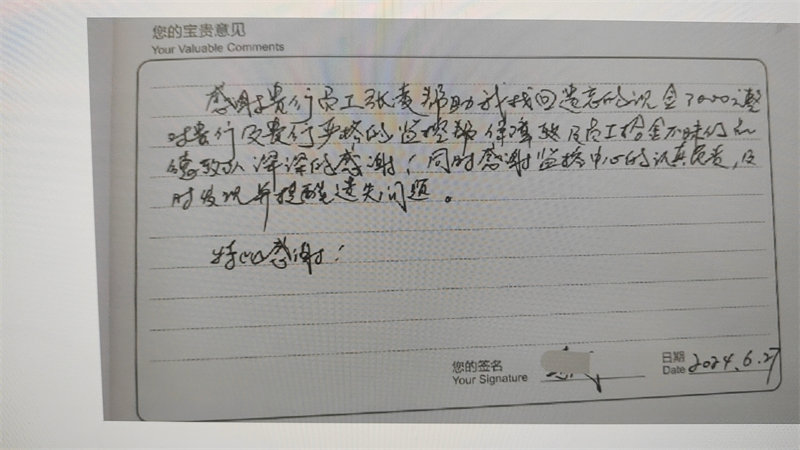 您的宝贵意见
Your Valuable Comments
感谢贵行员工张凌帮助我找回遗忘的现金7000元整
对贵行及贵行严格的监控 保障 及员工拾金不昧的品
德致以深深的感谢！同时感谢监控中心的认真负责，及
时发现并提醒遗失问题。
特此感谢！
您的签名
Your Signature
日期
Date 2024.6.27